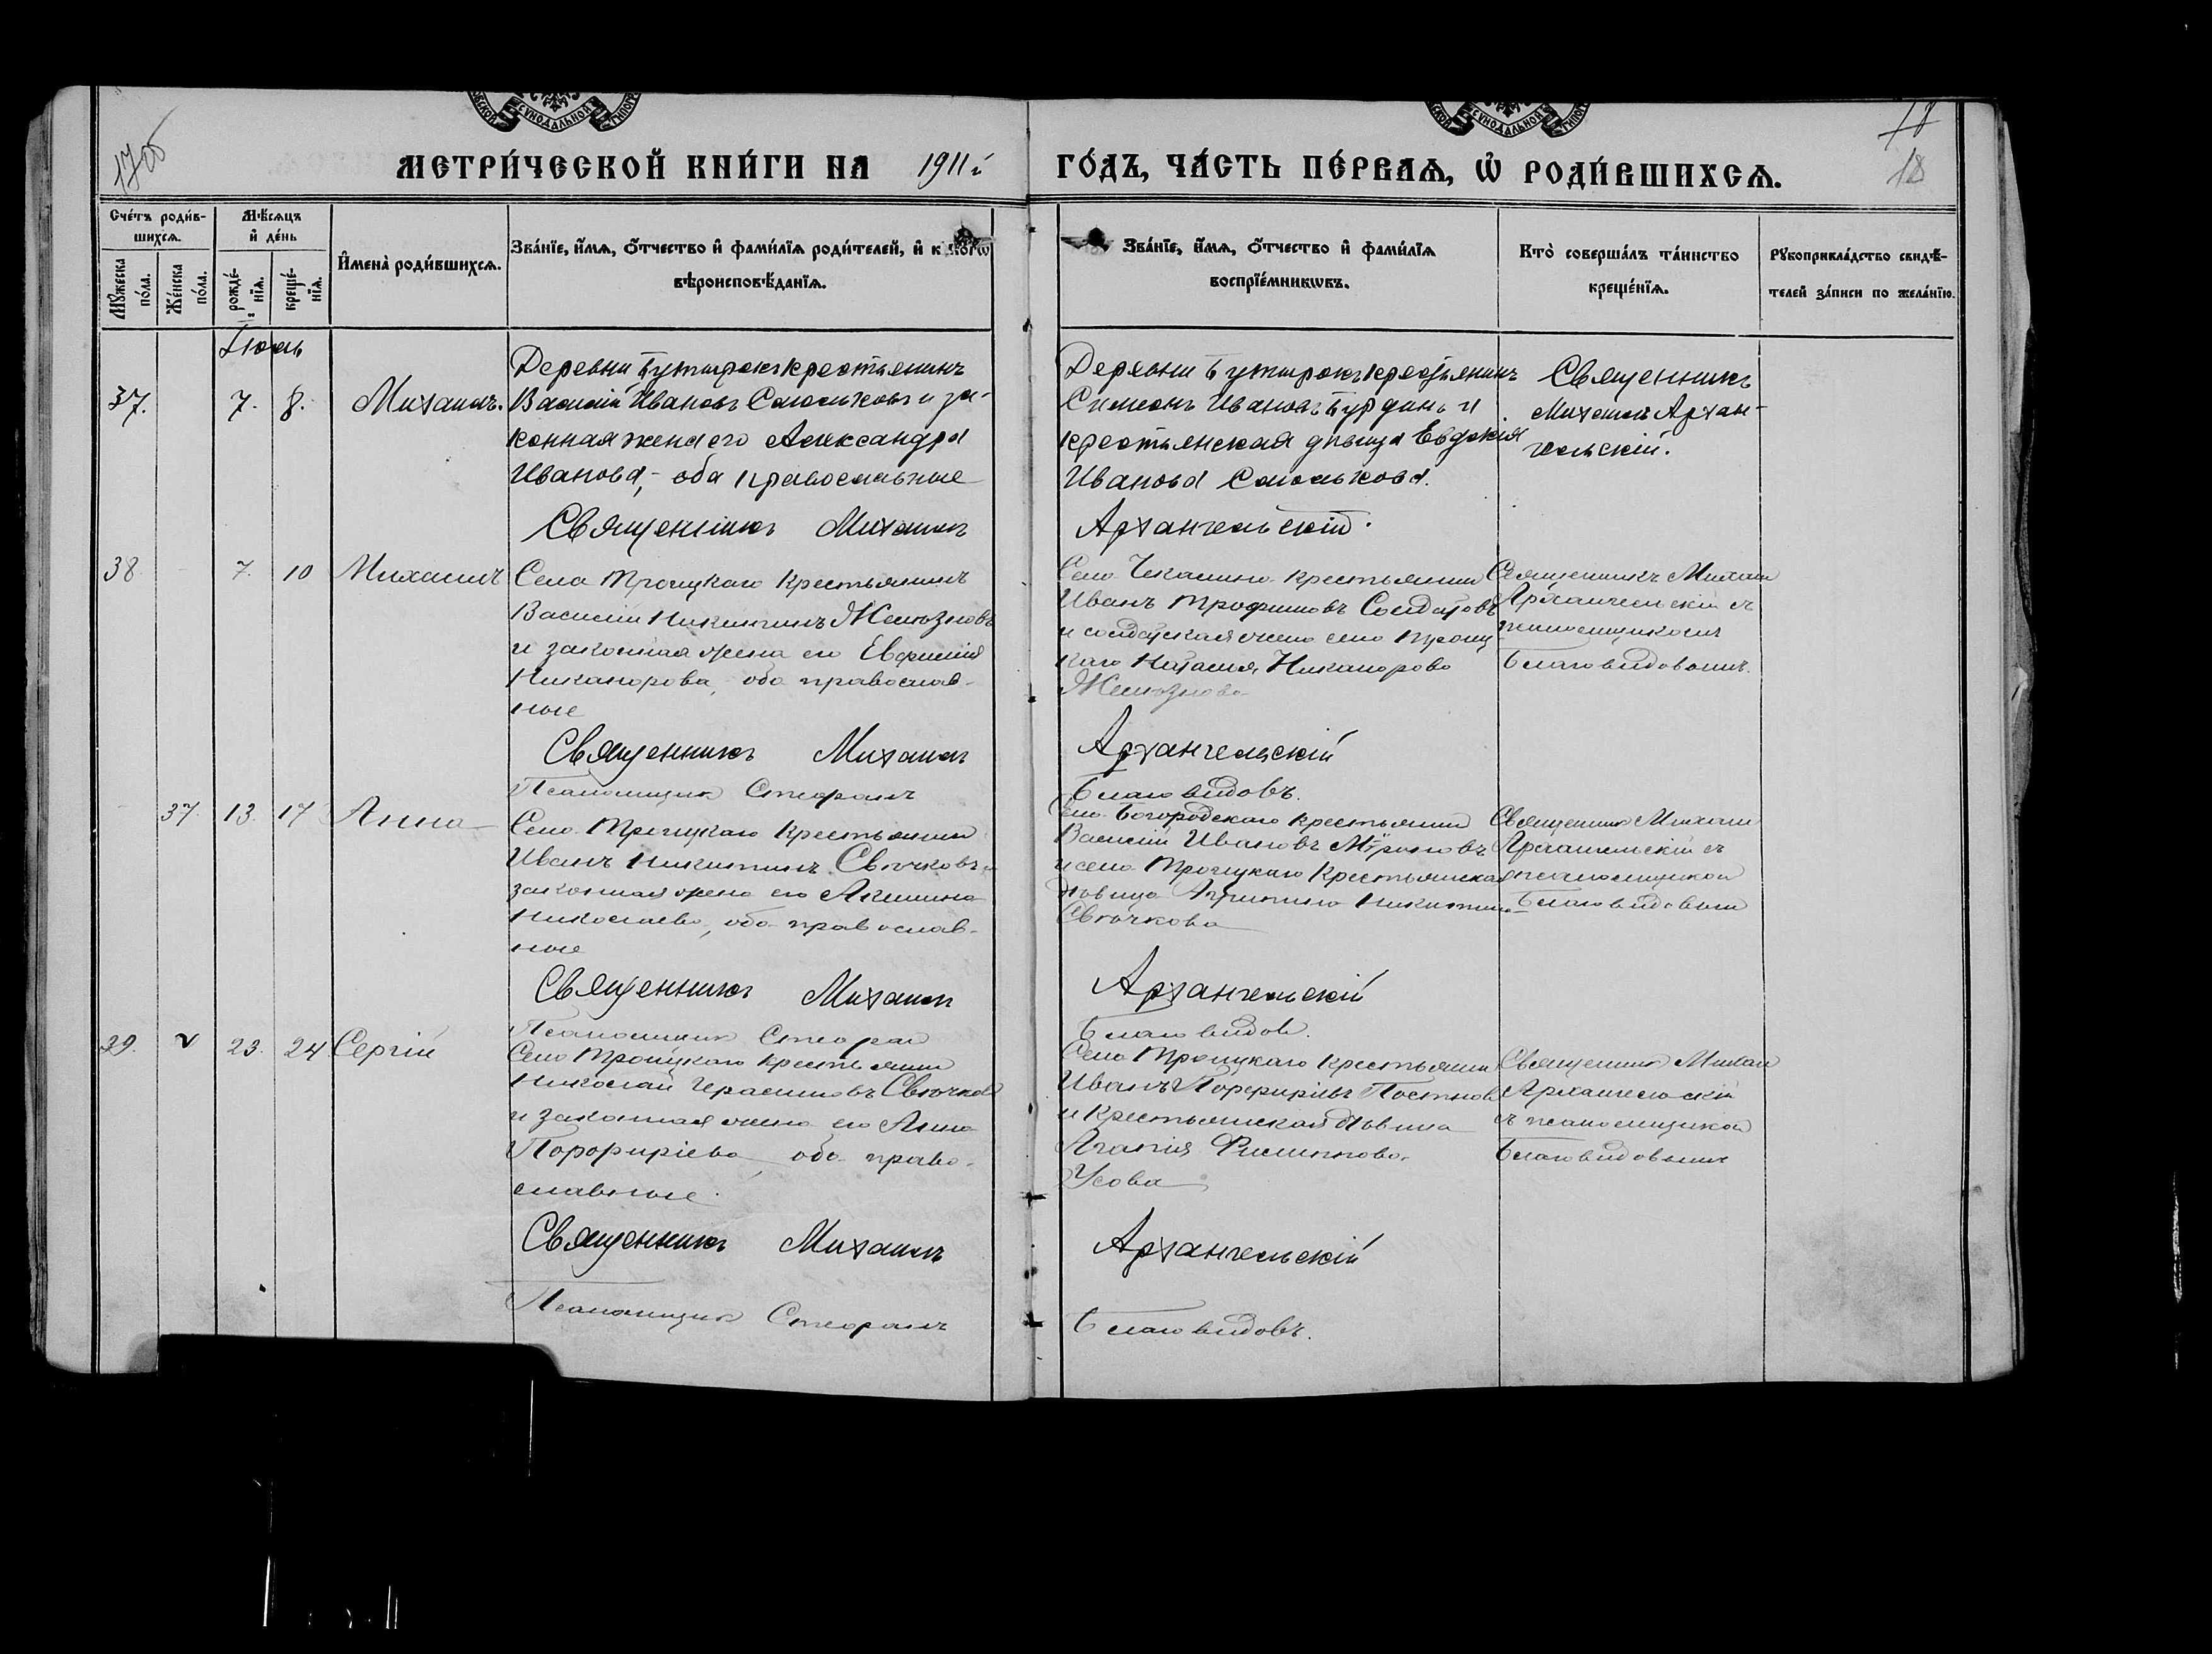 17об
18
18
СУНОДАЛЬНОЙ
СУНОДАЛЬНОЙ
МЕТРИ́ЧЕСКОЙ КНИ́ГИ НА 1911й ГО́ДЪ, ЧА́СТЬ ПЕ́РВАѦ, Ѡ҆ РОДИ́ВШИХСѦ.
Сче́тъ роди́в-
шихсѧ.
Мꙋжеска
по́ла.
Же́нска
по́ла.
Мѣ́сѧцъ
и҆ де́нь
рожде́-
нїѧ.
креще́-
нїѧ.
И҆мена̀ роди́вшихсѧ.
Зва́нїе, и҆́мѧ, ѻ҆́тчество и҆ фами́лїѧ роди́телей, и҆ к
вѣроисповѣ́данїѧ.
Зва́нїе, и҆́мѧ, ѻ҆́тчество и҆ фами́лїѧ
воспрїе́мникѡвъ.
Кто̀ соверша́лъ та́инство
креще́нїѧ.
Рꙋкоприкла́дство свидѣ́-
телей за́писи по жела́нїю.
Іюль
37. 7. 8. Михаилъ.
Деревни Бутырокъ крестьянинъ
Василій Ивановъ Смольковъ и за-
конная жена его Александра
Иванова, - оба православные
Деревни Бутырокъ крестьянинъ
Симеонъ Ивановъ Бурдинъ и
крестьянская дѣвица Евдокія
Иванова Смолькова.
Священникъ
Михаилъ Архан-
гельскій.
Священникъ Михаилъ Архангельскій.
38 7. 10 Михаилъ
Села Троицкаго крестьянинъ
Василій Никитинъ Желѣзновъ
и законная жена его Евфимія
Никанорова, оба православ-
ные
Села крестьянин
Иванъ Трофимовъ Солдатовъ
и солдатская жена села Троиц
каго Никанорова
Желѣзнова
Священникъ Михаил
Архангельскій съ
псаломщикомъ
Благовидовымъ.
Священникъ Михаилъ Архангельскій
Псаломщик Стефанъ Благовидовъ.
37. 13. 17 Анна
Села Троицкаго крестьянин
Иванъ Никитинъ Свѣчковъ и
законная жена его Акилина
Николаева, оба православ-
ные
Села Богородскаго крестьянин
Василій Ивановъ Мѵроновъ
и села Троицкаго крестьянская
дѣвица Никитина
Свѣчкова
Священник Михаил
Архангельскій съ
псаломщиком
Благовидовым
Священникъ Михаилъ Архангельскій
Псаломщик Стефан Благовидов.
29. 23. 24 Сергій
Села Троицкаго крестьянин
Николай Герасимовъ Свѣчков
и законная жена его Анна
Порфиріева, оба право-
славные.
Села Троицкаго крестьянин
Иванъ Порфирьевъ Постнов
и крестьянская дѣвица
Агапія Филиппова
Усова
Священник Михаил
Архангельскій
съ псаломщиком
Благовидовымъ
Священникъ Михаилъ Архангельскій
Псаломщик Стефанъ Благовидовъ.